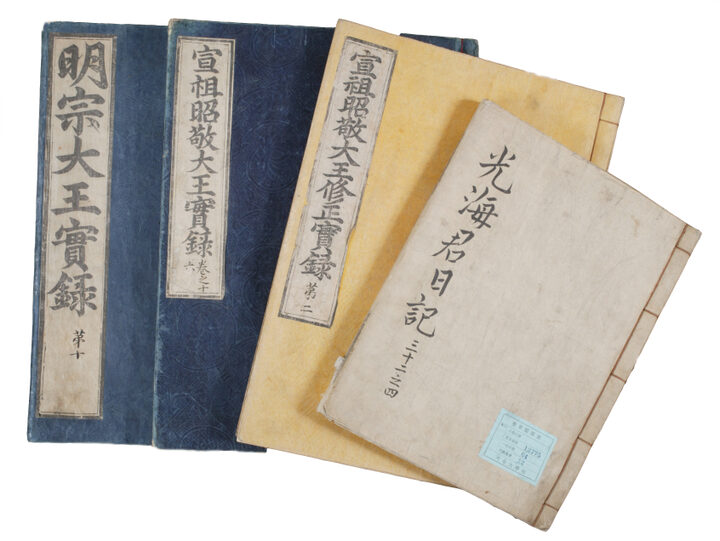 明宗大王實録
苐十
宣祖昭敬大王實録
卷之十
六
宣祖昭敬大王修正實録
苐二
光海君日記
三十二之四